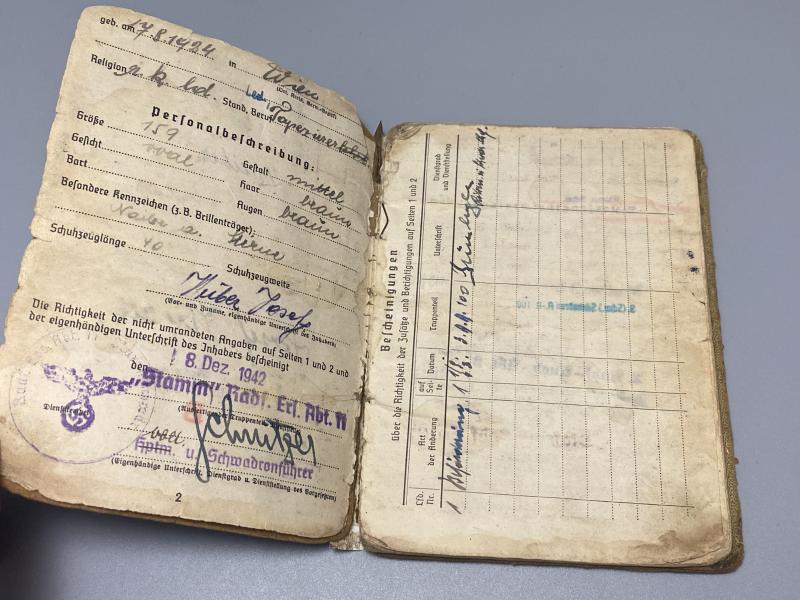 geb. am 17.8.1924 in Wien
(Ort, Kreis, Verw.-Bezirk)
Religion r. k. led. Stand, Beruf led., Tapezierer
Personalbeschreibung:
Größe 159 Gestalt mittel
Gesicht oval Haar braun
Bart Augen braun
Besondere Kennzeichen (z. B. Brillenträger):
Narbe a.
Schuhzeuglänge 40 Schuhzeugweite
Huber Josef
(Vor- und Zuname, eigenhändige Unterschrift des Inhabers)
Die Richtigkeit der nicht umrandeten Angaben auf Seiten 1 und 2 und
der eigenhändigen Unterschrift des Inhabers bescheinigt
den 18. Dez. 1942
"Stamm" Radf. Ers. Abt. 11
Schnitzer
Hptm. u. Schwadronführer
(Eigenhändige Unterschrift, Dienstgrad u. Dienststellung des Vorgesetzten)
2
Bescheinigungen
über die Richtigkeit der Zusätze und Berichtigungen auf Seiten 1 und 2
Lfd. Nr.
Art der Änderung
auf Seite
Datum
Truppenteil
Unterschrift
Dienstgrad und Dienststellung
1
1
100